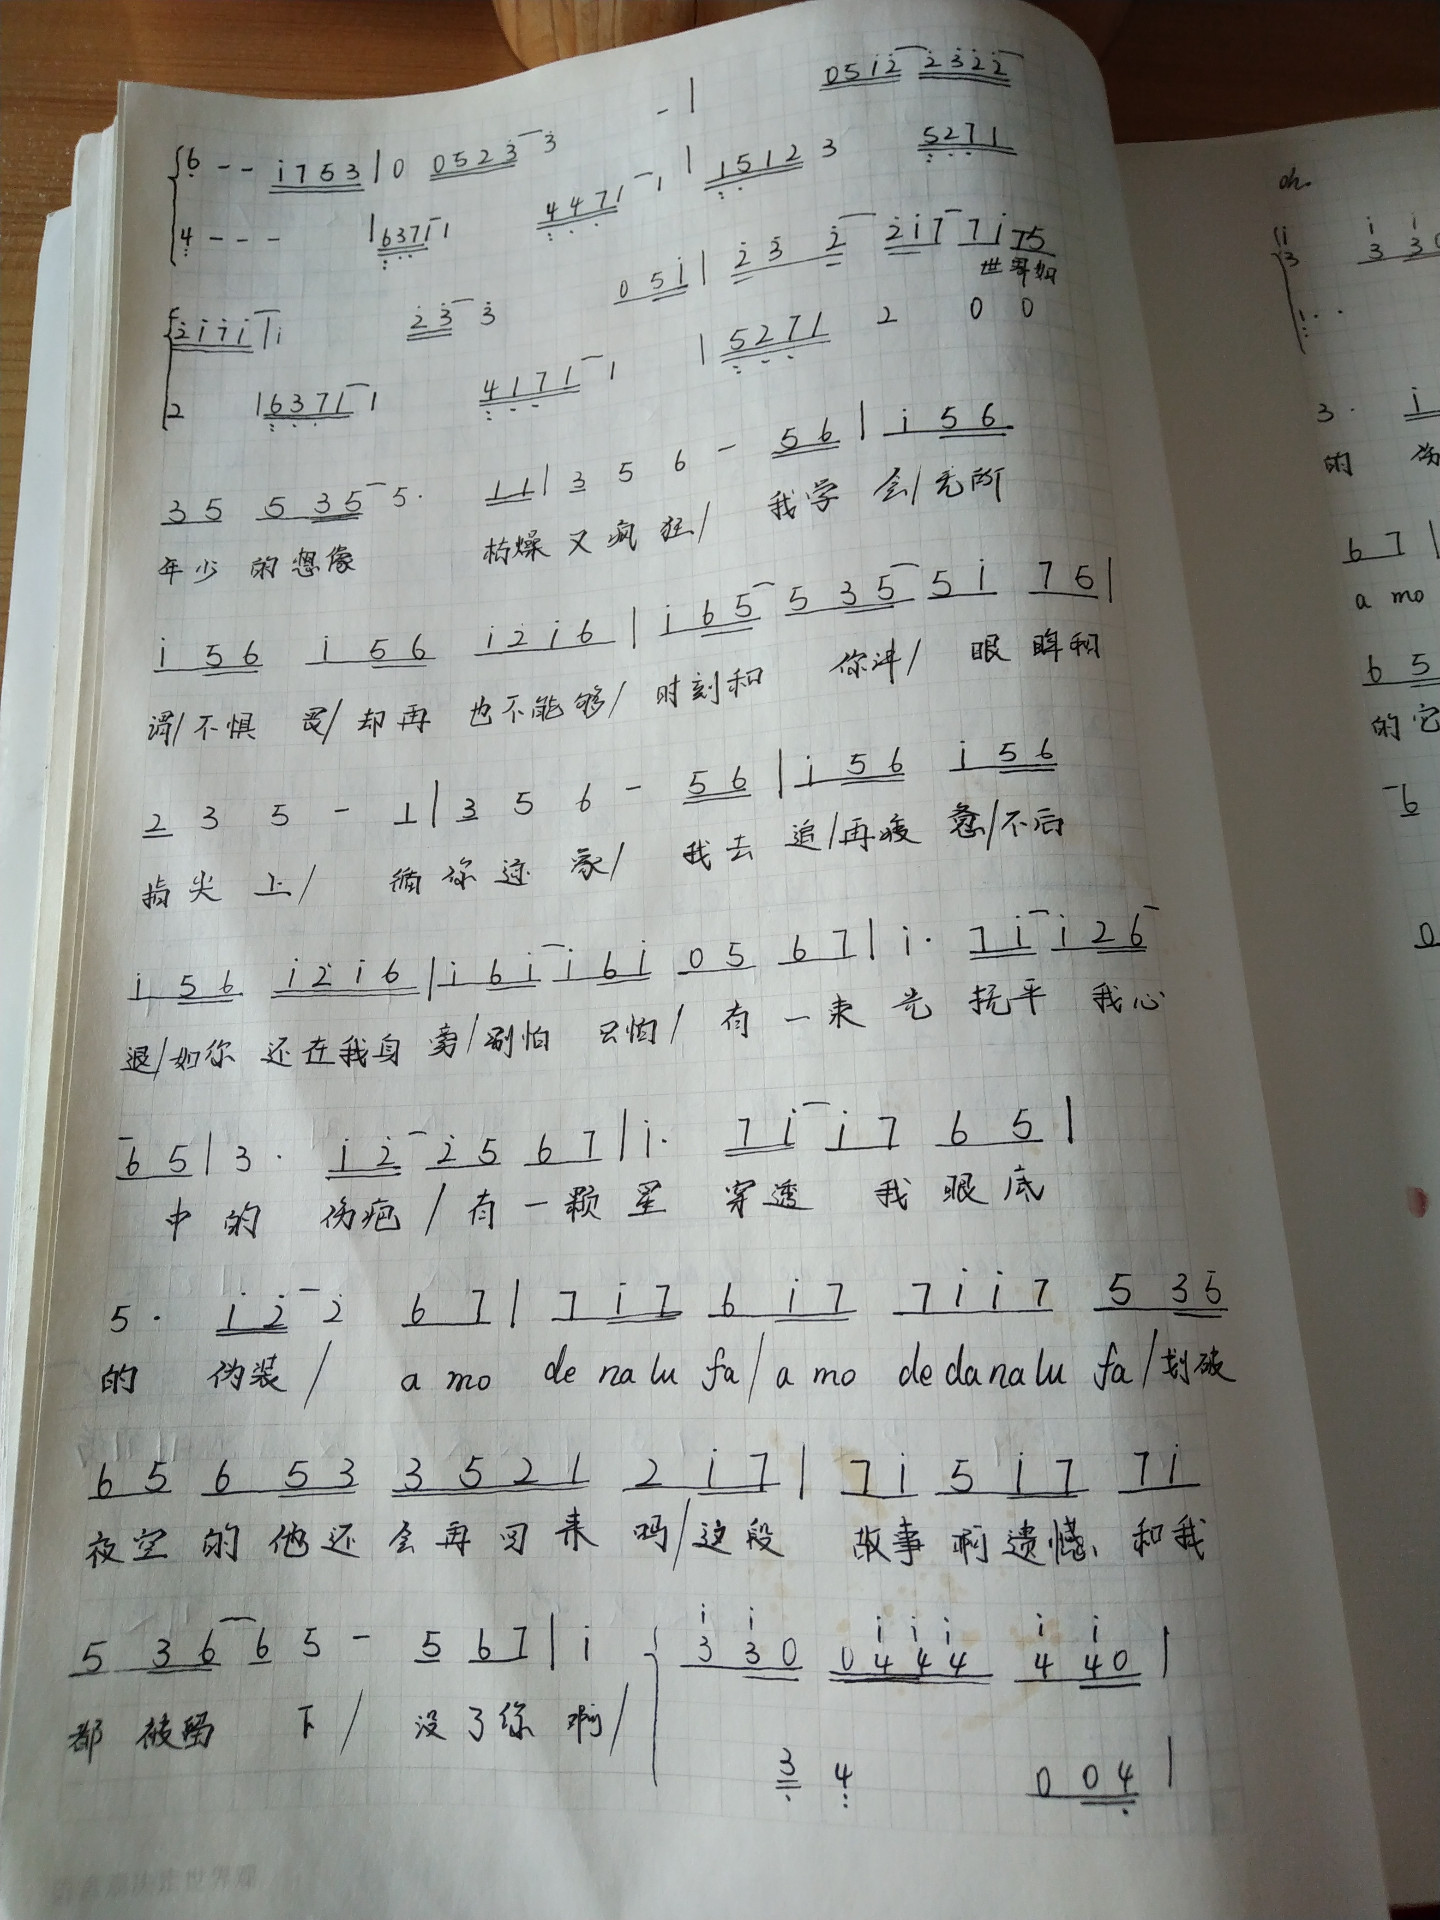 6 - - i 7 5 3 | 0 0 5 2 3 3 - | 0 5 i 2 2 3 2 2
4 - - - | 6 3 7 1 1 4 4 7 1 1 | 1 5 1 2 3 5 2 7 1
2 i 7 i | i 2 3 3 0 5 i | 2 3 2 2 i 7 7 i 7 5
世界如
2 | 6 3 7 1 1 4 1 7 1 1 | 5 2 7 1 2 0 0
3 5 5 3 5 5 · 1 1 | 3 5 6 - 5 6 | i 5 6
年少 的想像 枯燥又疯狂/ 我学 会/无所
i 5 6 i 5 6 i 2 i 6 | i 6 5 5 3 5 5 i 7 6 |
谓/不惧 畏/却再 也不能够/时刻和 你讲/ 眼眸和
2 3 5 - 1 | 3 5 6 - 5 6 | i 5 6 i 5 6
指尖 上/ 循你迹象/ 我去 追/再疲 惫/不后
i 5 6 i 2 i 6 | i 6 i i 6 i 0 5 6 7 | i · 7 i i 2 6
退/如你 还在我身 旁/别怕 只怕/ 有一束光 抚平 我心
6 5 | 3 · i 2 2 5 6 7 | i · 7 i i 7 6 5 |
中的 伤疤/有一颗星 穿透 我眼底
5 · i 2 2 6 7 | 7 i 7 6 i 7 7 i i 7 5 3 5
的 伪装/ a mo de na lu fa/a mo de da na lu fa/划破
6 5 6 5 3 3 5 2 1 2 i 7 | 7 i 5 i 7 7 i
夜空的他还会再回来 吗/这段 故事啊遗憾、和我
5 3 6 6 5 - 5 6 7 | i
i i i i i i i
3 3 0 0 4 4 4 4 4 0 |
都 下/ 没了你啊/
3 4 0 0 4 |
oh.
i i i
3 3 3
3 · i
的 伤
6 7 |
a mo
6 5
的它
6
0